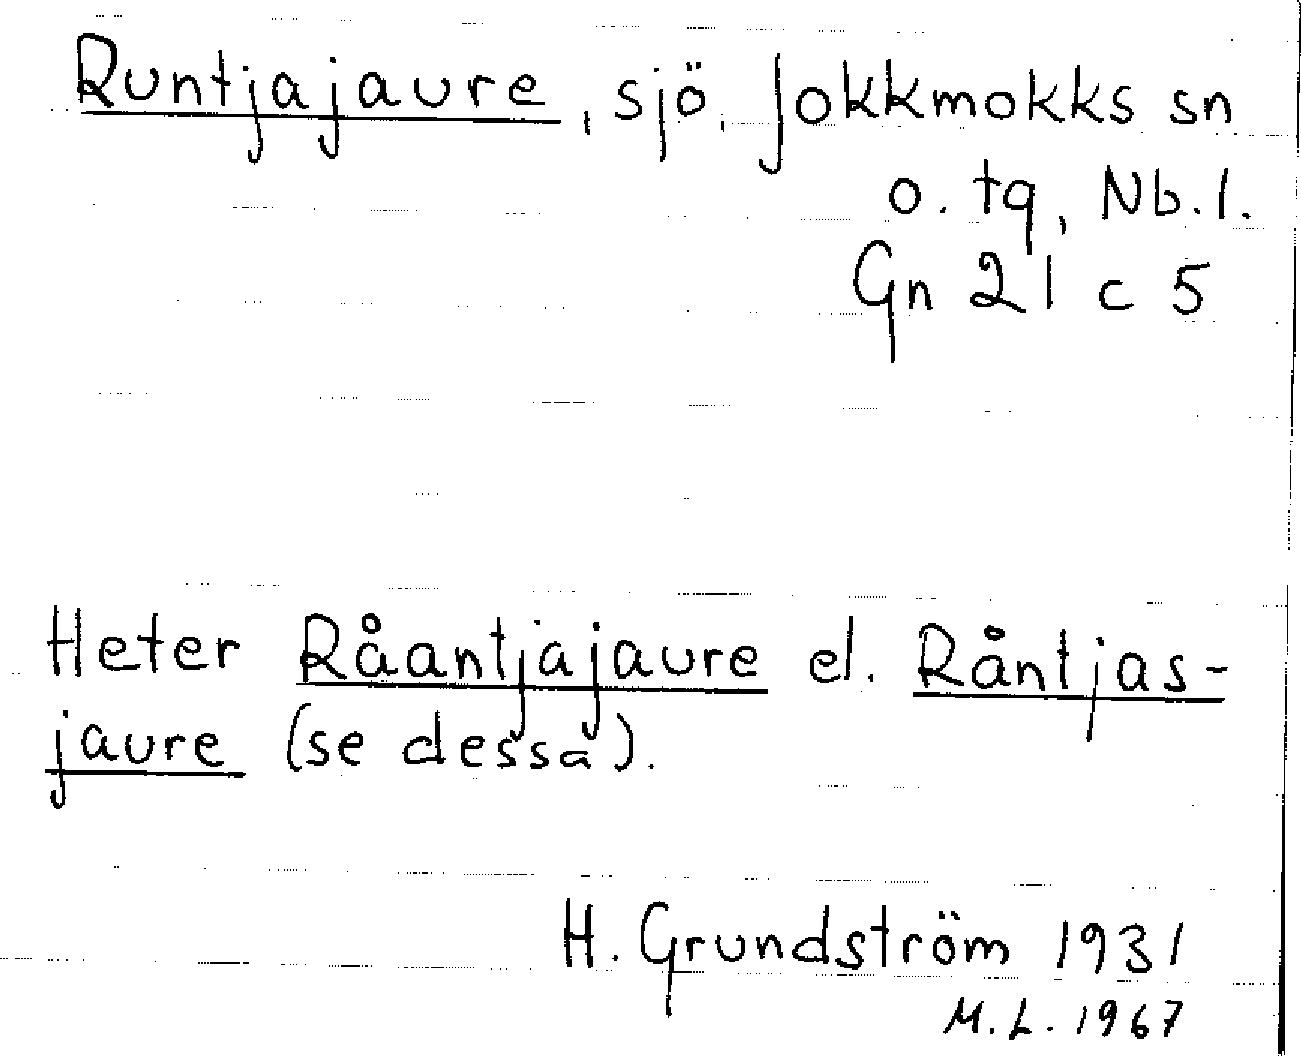 Runtjajaure, sjö, Jokkmokks sn
o. tg, Nb. l.
Gn 21 c 5
Heter Råantjajaure el. Råntjas-
jaure (se dessa).
H. Grundström 1931
M. L. 1967